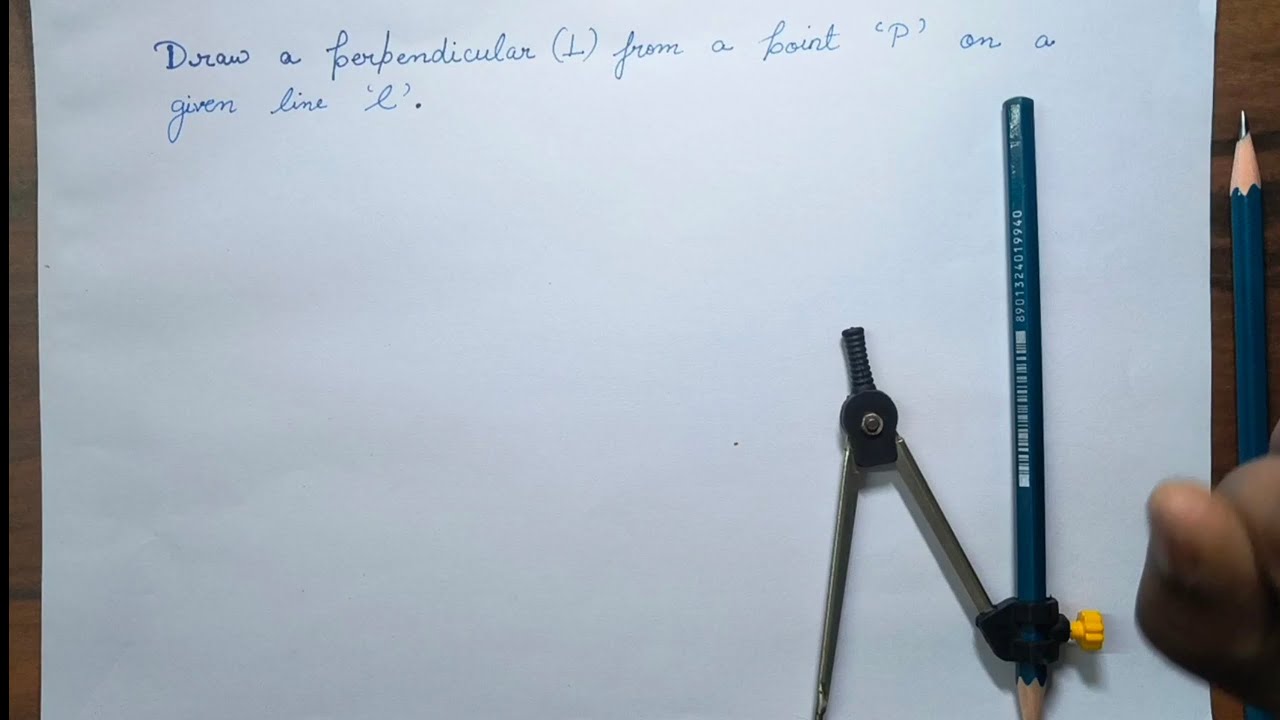 Draw a perpendicular (⊥) from a point 'P' on a
given line 'l'.
8901324019940